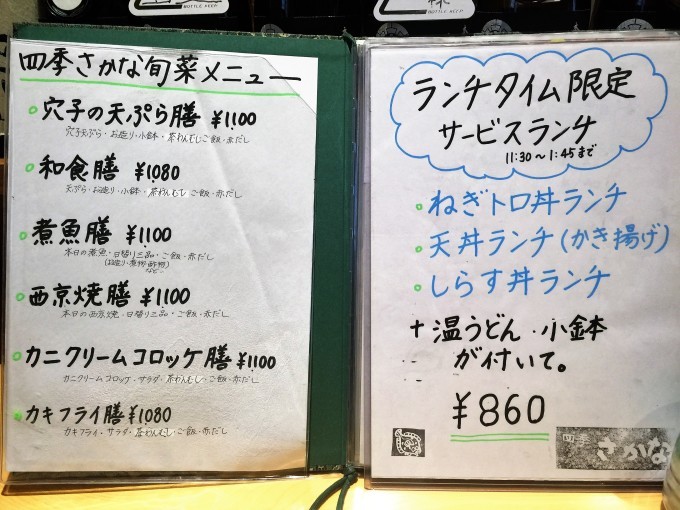 BOTTLE KEEP
BOTTLE KEEP
四季さかな旬菜メニュー
穴子の天ぷら膳 ¥1100
穴子天ぷら・お造り・小鉢・茶わんむし ご飯・赤だし
和食膳 ¥1080
天ぷら・お造り・小鉢・茶わんむし ご飯・赤だし
煮魚膳 ¥1100
本日の煮魚・日替り三品・ご飯・赤だし
(お造り・煮物・酢物)
など…
西京焼膳 ¥1100
本日の西京焼・日替り三品・ご飯・赤だし
カニクリームコロッケ膳 ¥1100
カニクリームコロッケ・サラダ・茶わんむし・ご飯・赤だし
カキフライ膳 ¥1080
カキフライ・サラダ・茶わんむし・ご飯・赤だし
様
ランチタイム限定
サービスランチ
11:30～1:45まで
ねぎトロ丼ランチ
天丼ランチ(かき揚げ)
しらす丼ランチ
+温うどん・小鉢
が付いて。
¥860
四季
さかな